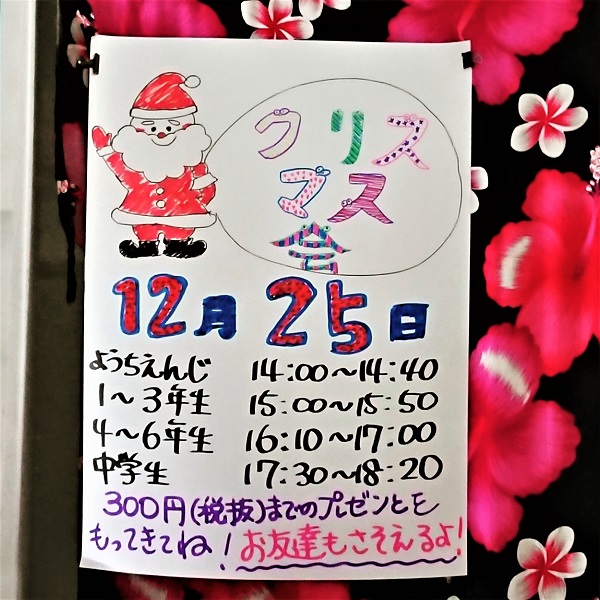 クリスズ
マス
会
12月25日
ようちえんじ 14:00〜14:40
1〜3年生 15:00〜15:50
4〜6年生 16:10〜17:00
中学生 17:30〜18:20
300円(税抜)までのプレゼントを
もってきてね！お友達もさそえるよ！